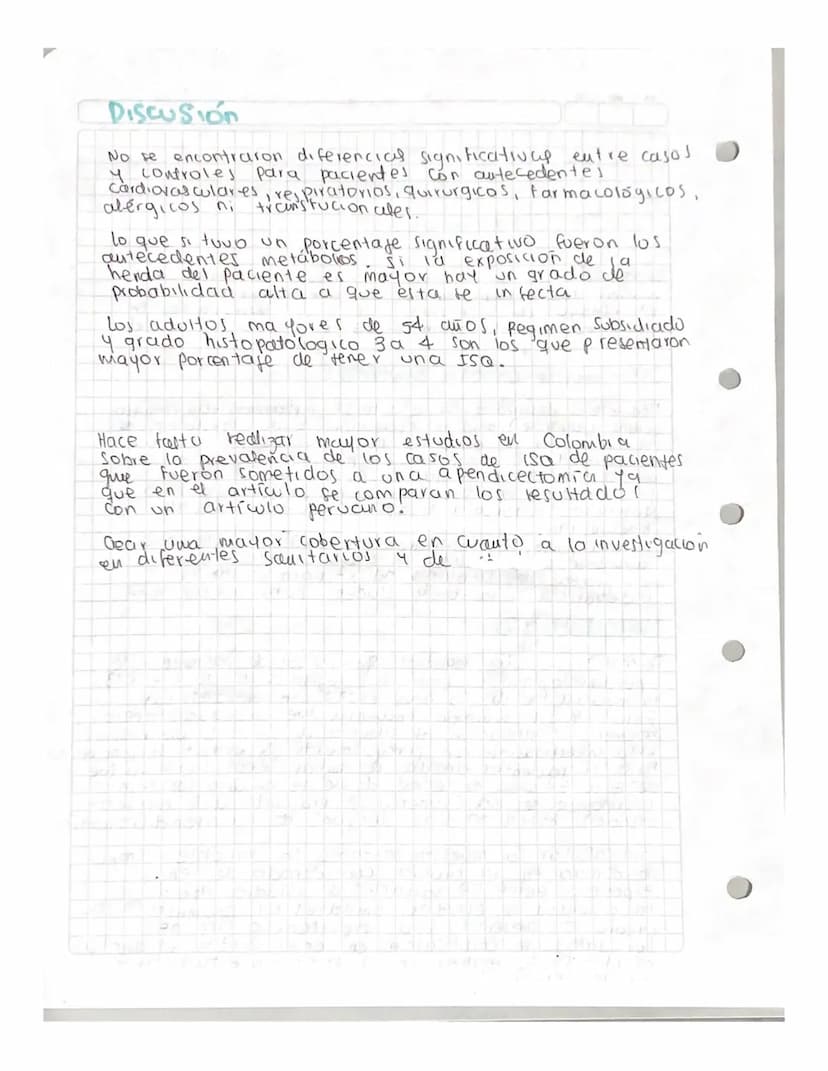 Discusión
No se encontraron diferencias significativas entre casos
y controles para pacientes con antecedentes
cardiovasculares, respiratorios, quirurgicos, farmacológicos,
alérgicos ni transfucionales.
lo que si tuvo un porcentaje significativo fueron los
antecedentes metábolios. si la exposición de la
herida del paciente es mayor hay un grado de
probabilidad alta a que esta se infecta
Los adultos mayores de 54 años, Regimen Subsidiado
y grado histopatologico 3 a 4 son los que presentaron
mayor porcentaje de tener una ISQ.
Hace falta realizar mayor estudios en Colombia
Sobre la prevalencia de los casos de ISQ de pacientes
que fuerón sometidos a una apendicectomía ya
que en el artículo se comparan los resultados
con un artículo peruano.
Crear una mayor cobertura en cuanto a la investigación
en diferentes sanitarios y de